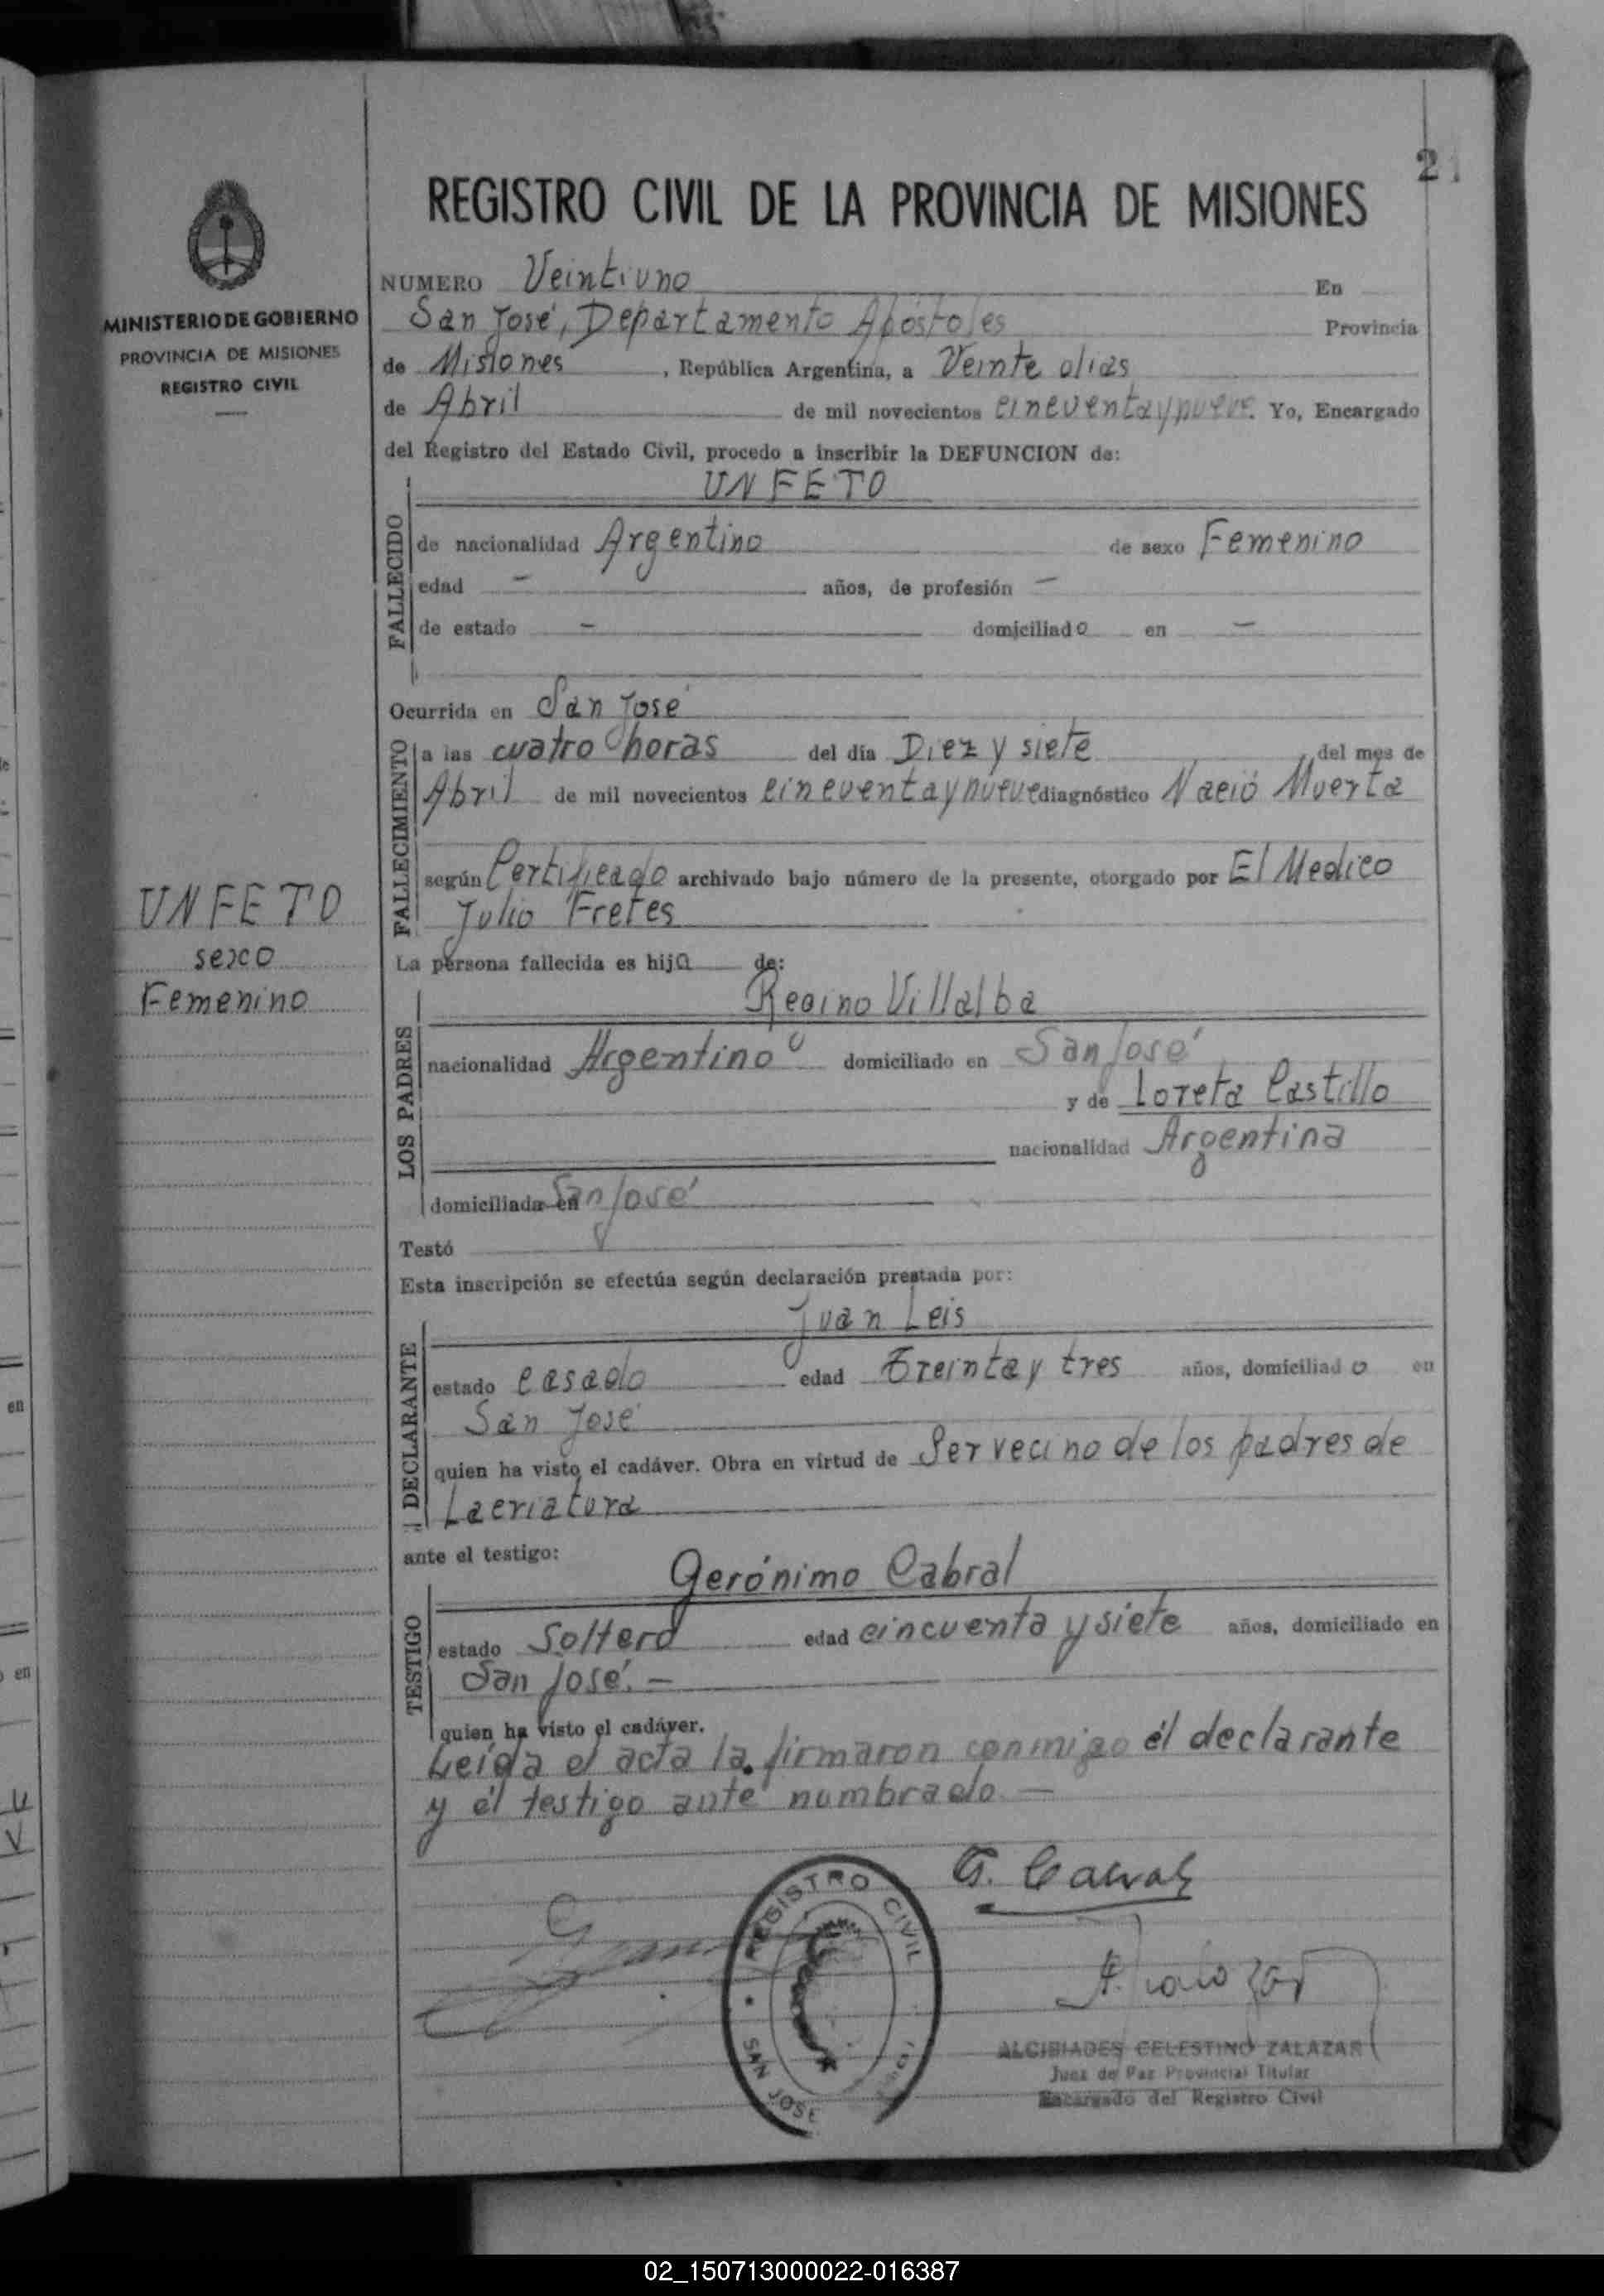 21
REGISTRO CIVIL DE LA PROVINCIA DE MISIONES
MINISTERIO DE GOBIERNO
PROVINCIA DE MISIONES
REGISTRO CIVIL
NUMERO Veintiuno En
San José, Departamento Apóstoles Provincia
de Misiones, República Argentina, a Veinte dias
de Abril de mil novecientos cincuenta y nueve. Yo, Encargado
del Registro del Estado Civil, procedo a inscribir la DEFUNCION de:
UN FETO
FALLECIDO
de nacionalidad Argentino de sexo Femenino
edad - años, de profesión -
de estado - domiciliado en -
Ocurrida en San José
FALLECIMIENTO
a las cuatro horas del día Diez y siete del mes de
Abril de mil novecientos cincuenta y nueve diagnóstico Nació Muerta
según Certificado archivado bajo número de la presente, otorgado por El Medico
Julio Fretes
UN FETO
sexo
Femenino
La persona fallecida es hija de:
Regino Villalba
LOS PADRES
nacionalidad Argentino domiciliado en San José
y de Loreta Castillo
nacionalidad Argentina
domiciliada en San José
Testó
Esta inscripción se efectúa según declaración prestada por:
Juan Leis
DECLARANTE
estado casado edad Treinta y tres años, domiciliado en
San José
quien ha visto el cadáver. Obra en virtud de Ser vecino de los padres de
La criatura
ante el testigo:
Gerónimo Cabral
TESTIGO
estado Soltero edad cincuenta y siete años, domiciliado en
San José. -
quien ha visto el cadáver.
Leida el acta la firmaron conmigo él declarante
y él testigo ante nombrado -
G. Cabral
REGISTRO CIVIL
SAN JOSE
ALCIBIADES CELESTINO ZALAZAR
Juez de Paz Provincial Titular
Encargado del Registro Civil
en
en
02_150713000022-016387